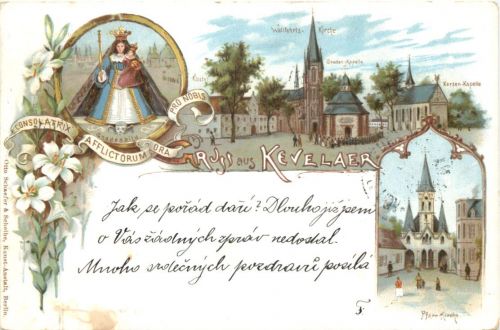 Wallfahrts-Kirche
Gnaden-Kapelle
Kerzen-Kapelle
CONSOLATRIX AFFLICTORUM ORA PRO NOBIS
GRUSS AUS KEVELAER
Jak se pořád daří? Dlouho již jsem
o Vás žádných zpráv nedostal.
Mnoho srdečných pozdravů posílá
F.
Pfarr-Kirche
Otto Schaefer & Scheibe, Kunst-Anstalt, Berlin.